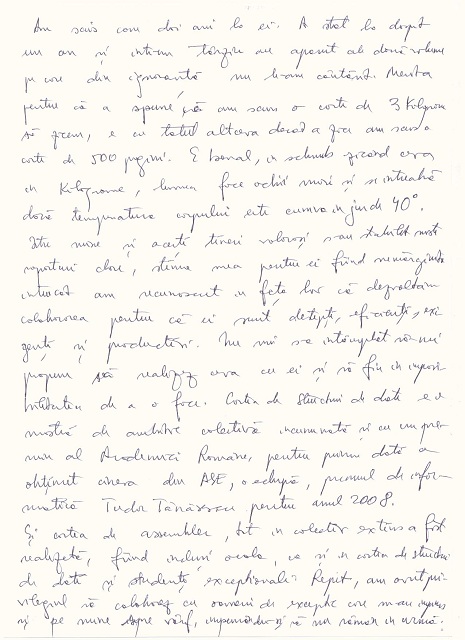 Am scris cam doi ani la ei. A stat la drept
un an și într-un târziu au apărut ale două volume
pe care din ignoranță nu le-am cântărit. Merita
pentru că a spune că am scris o carte de 3 kilograme
să zicem, e cu totul altceva decât a zice am scris o
carte de 500 pagini. E banal, în schimb zicând ceva
în kilograme, lumea face ochii mari și se întreabă
dacă temperatura corpului este cumva în jur de 40°.
Între mine și acești tineri valoroși s-au stabilit niște
raporturi clare, stima mea pentru ei fiind nemărginită
întrucât am recunoscut în fața lor că dezvoltăm
colaborarea pentru că ei sunt deștepți, eficienți, exi
genți și productivi. Nu mi s-a întâmplat să-mi
propun să realizez ceva cu ei și să fiu în imposi
bilitatea de a o face. Cartea de structuri de date e o
mostră de ambiție colectivă încununată și cu un pre
miu al Academiei Române, pentru prima dată a
obținut cineva din ASE, o echipă, premiul de infor
matică Tudor Tănăsescu pentru anul 2008.
Și cartea de assembler, tot în colectiv extins a fost
realizată, fiind incluși acolo, ca și în cartea de structuri
de date și studenți excepționali. Repet, am avut pri
vilegiul să colaborez cu oameni de excepție care m-au împins
și pe mine spre vârf, impunându-și să nu rămân în urmă.